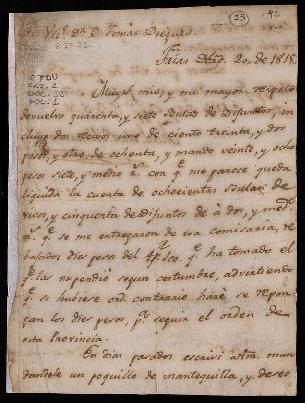 25
Sr. Vic.o Dn. D. Tomas Dieguez.
8-23-22
Frias Dbre. 20. de 1815
OTDU
CAZ. 1
DOC. 32
FOL. 1
Muy S.r mio, y mi mayor respeto:
devuelvo quarenta, y siete Bulas de Difuntos, in-
cluyo dos recivos uno de ciento treinta, y dos
pesos, y otro de ochenta, y mando veinte, y ocho
pesos siete, y medio r.s con q.e me parece queda
liquida la cuenta de ochocientas Bulas de
vivos, y cincuenta de difuntos de á dos, y med.o
r.s q.e se me entregaron de esa comisaria, re-
bajados dies pesos del 4 p.r 100. q.e ha tomado el
q.e las expendió segun costumbre, advirtiendo
q.e si hubiese ord.n contrario haré se repon-
gan los dies pesos, p.a seguir el orden de
esta Provincia.
En dias pasados escrivi á Vm. man-
dandole un poquillo de mantequilla, y deseo